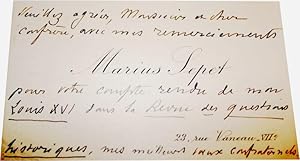 Veuillez agréer, Monsieur et cher
confrère, avec mes remerciements
Marius Sepet
pour votre compte rendu de mon
Louis XVI dans la Revue des questions
23, rue Vaneau, VIIe
historiques, mes meilleurs vœux confraternels.